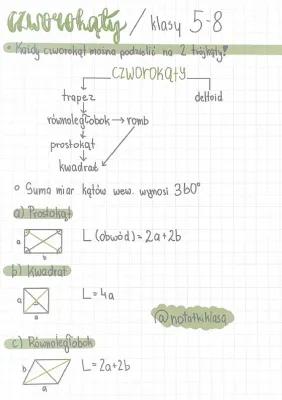 czworokąty / klasy 5-8
• Każdy czworokąt można podzielić na 2 trójkąty!
CZWOROKĄTY
trapez
deltoid
równoległobok → romb
prostokąt
kwadrat
• Suma miar kątów wew. wynosi 360°
a) Prostokąt
a
b
L (obwód) = 2a+2b
b) Kwadrat
a
a
L = 4a
@notatki.klasa
c) Równoległobok
b
a
L = 2a+2b